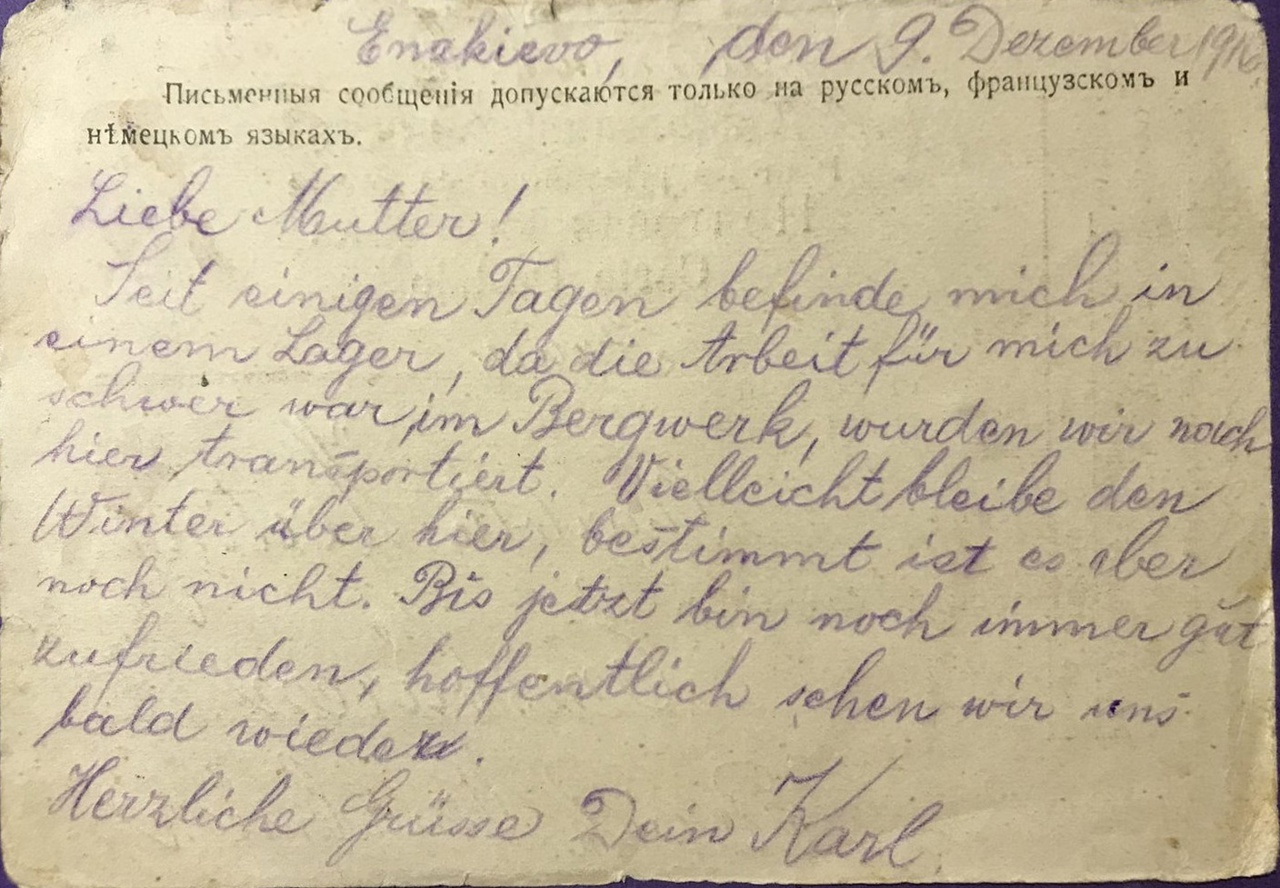 Enakievo, den 9. Dezember 1916.
Письменныя сообщенія допускаются только на русскомъ, французскомъ и
нѣмецкомъ языкахъ.
Liebe Mutter!
Seit einigen Tagen befinde mich in
einem Lager, da die Arbeit für mich zu
schwer war im Bergwerk, wurden wir nach
hier transportiert. Vielleicht bleibe den
Winter über hier, bestimmt ist es aber
noch nicht. Bis jetzt bin noch immer gut
zufrieden, hoffentlich sehen wir uns
bald wieder.
Herzliche Grüsse Dein Karl